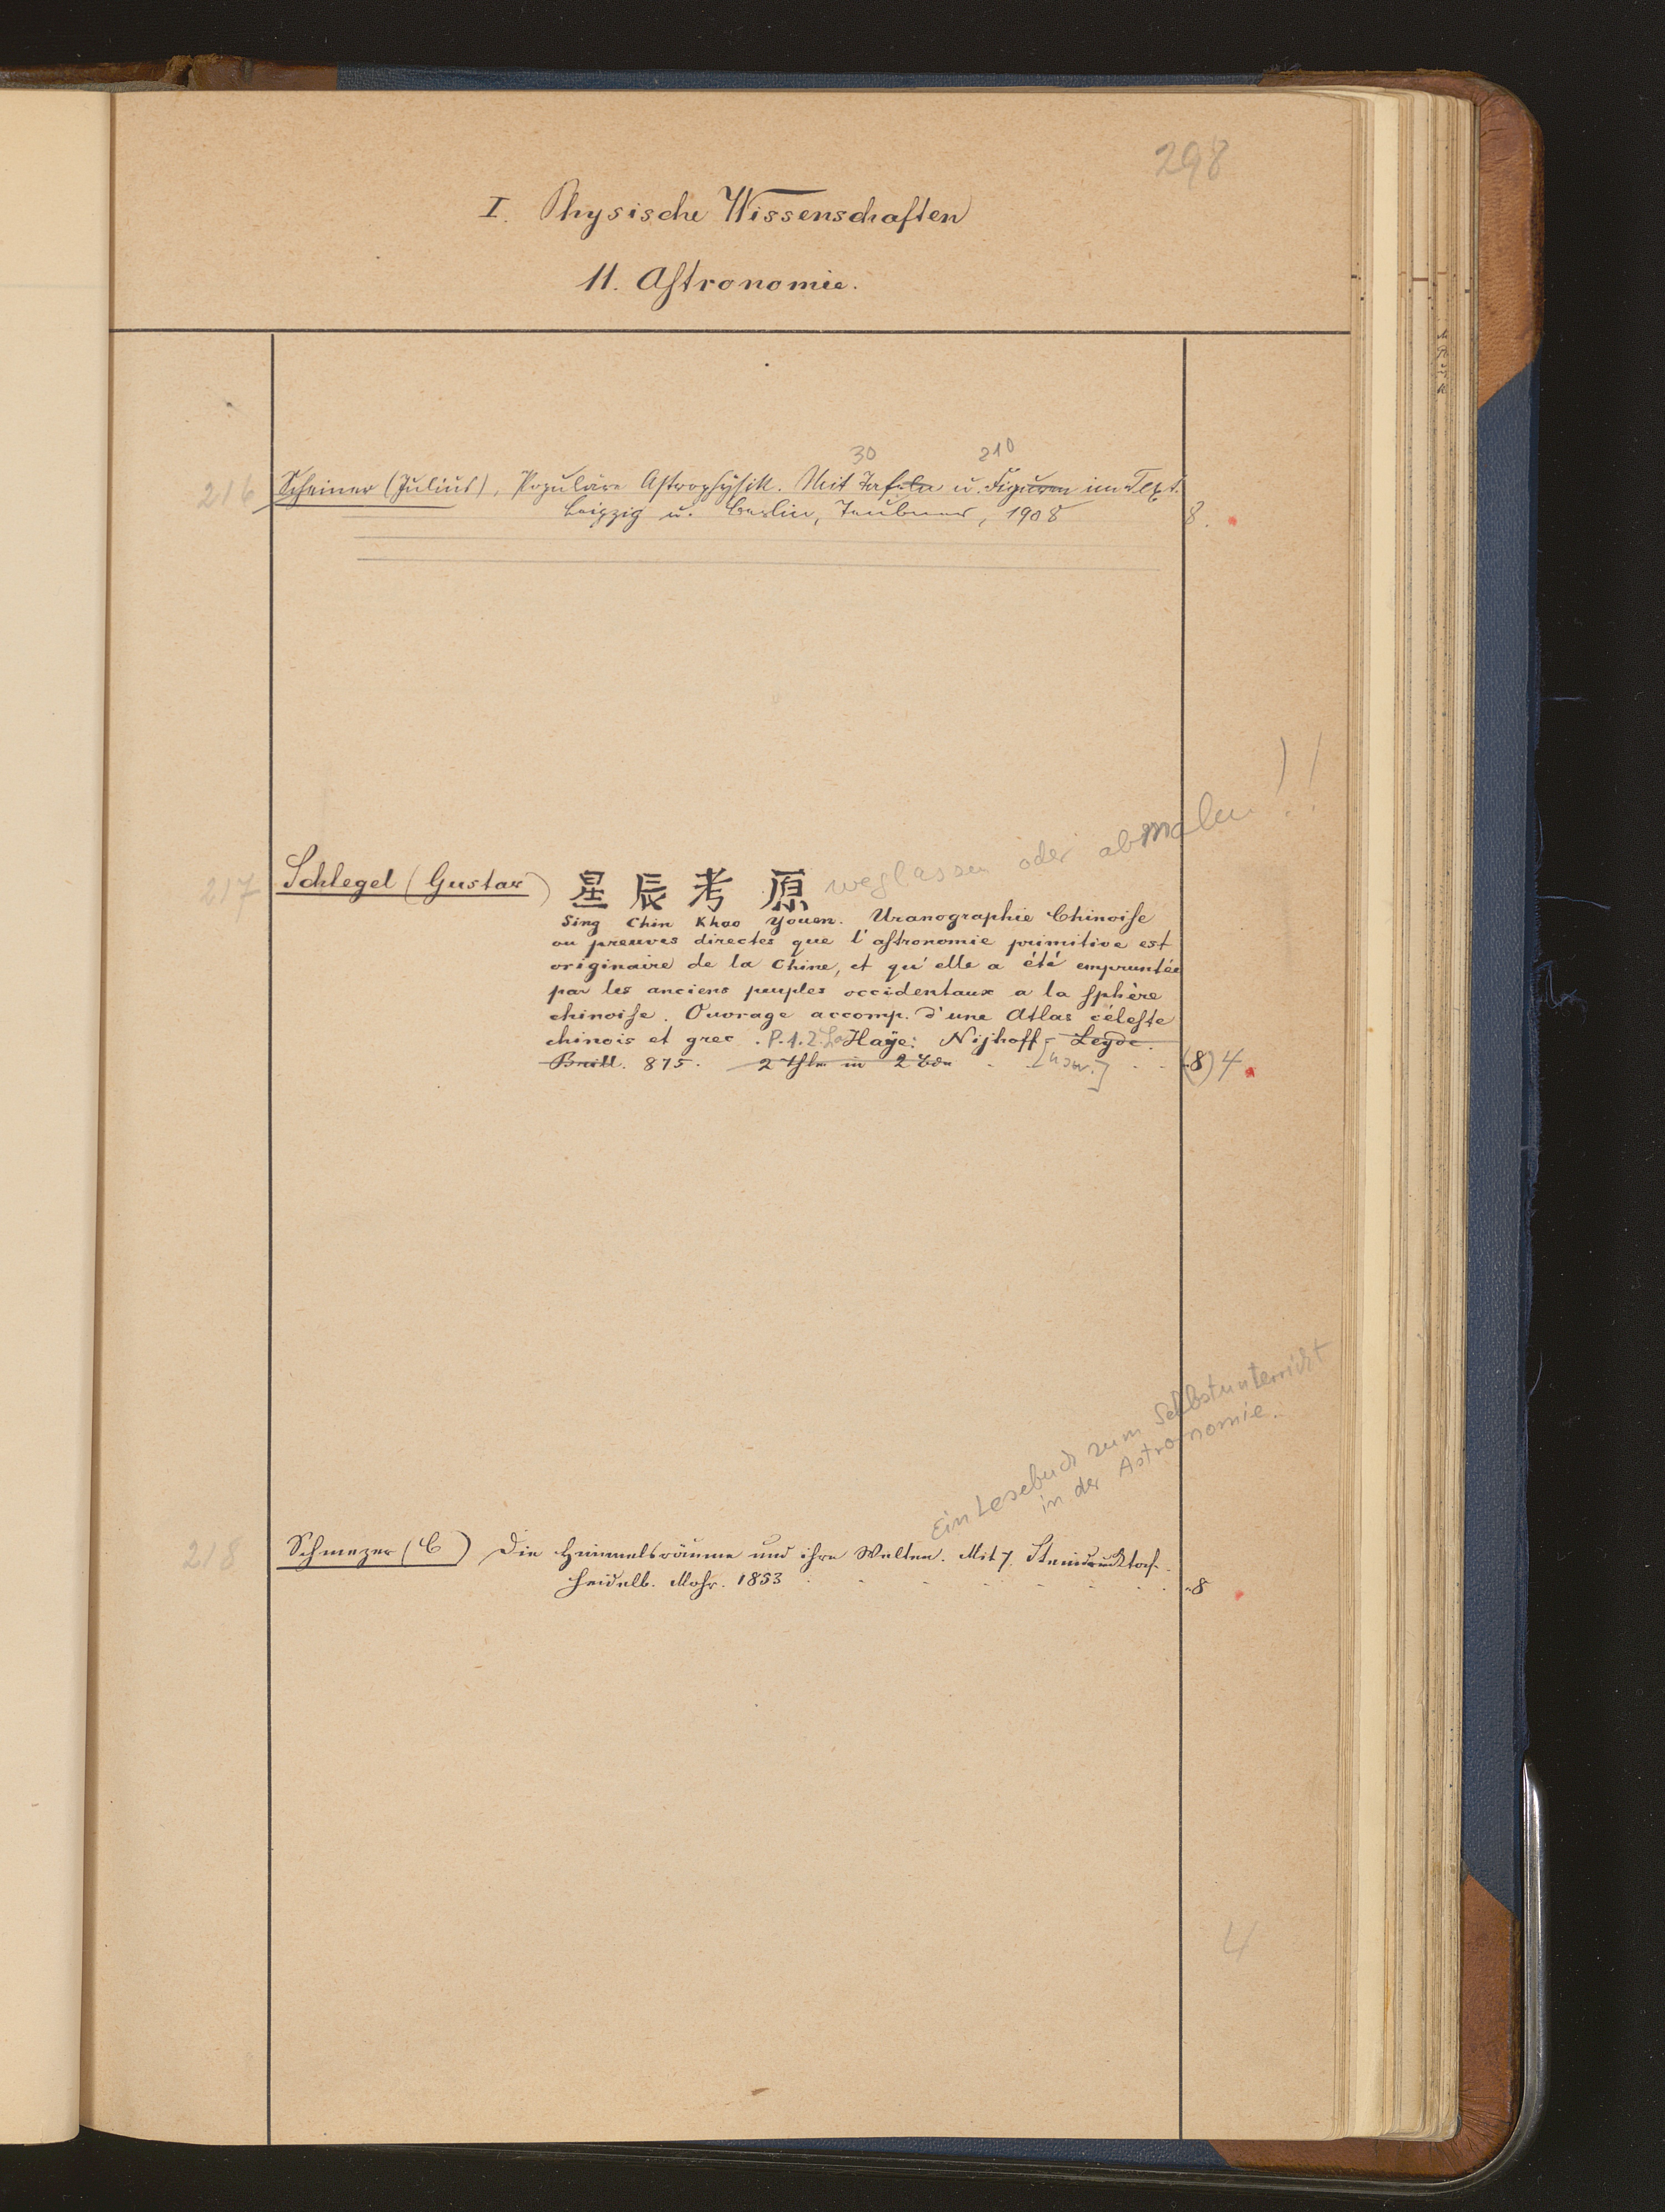 298
I. Physische Wissenschaften
11. Astronomie.
30 210
216 Scheiner (Julius), Populäre Astrophysik. Mit Tafeln u. Figuren im Text.
Leipzig u. Berlin, Teubner, 1908 8.
weglassen oder abmalen!!
217 Schlegel (Gustav) 星辰考原
Sing Chin Khao Youen. Uranographie Chinoise
ou preuves directes que l'astronomie primitive est
originaire de la Chine, et qu'elle a été empruntée
par les anciens peuples occidentaux a la sphère
chinoise. Ouvrage accomp. d'une Atlas céleste
chinois et grec. P.1.2. La Haÿe: Nijhoff Leyde.
Brill. 875. 2 Thle in 2 Bdn [usw.] (8) 4
Ein Lesebuch zum Selbstunterricht
in der Astronomie.
218 Schmezer (C) Die Himmelsräume und ihre Welten. Mit 7. Steindrucktaf.
Heidelb. Mohr. 1853 8
4